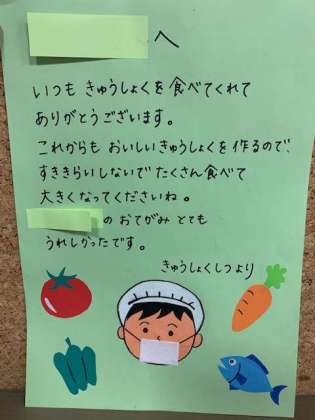 へ
いつも きゅうしょくを 食べてくれて
ありがとうございます。
これからも おいしいきゅうしょくを 作るので、
すききらいしないで たくさん食べて
大きくなってくださいね。
の おてがみ とても
うれしかったです。
きゅうしょくしつより